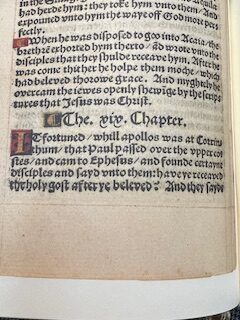 had herde hym: they toke hym vnto them/ and
expouned vnto hym the waye off God more per
fectly.
When he was disposed to goo into Acaia/ the
brethrē exhorted hym therto/ ād wrote vnto the
disciples that they shulde receave hym. After he
was come thither he holpe them moche/ which
had beleved thorowe grace. And myghtely he
overcam the iewes openly shewīge by the scrip
tures that Jesus was Christ.
The. xix. Chapter.
IT fortuned/ whill apollos was at Corrin
thum/ that Paul passed over the vpper cos
stes/ and cam to Ephesus/ and founde certayne
disciples and sayd vnto them: have ye receaved
the holy gost after ye beleved? And they sayde